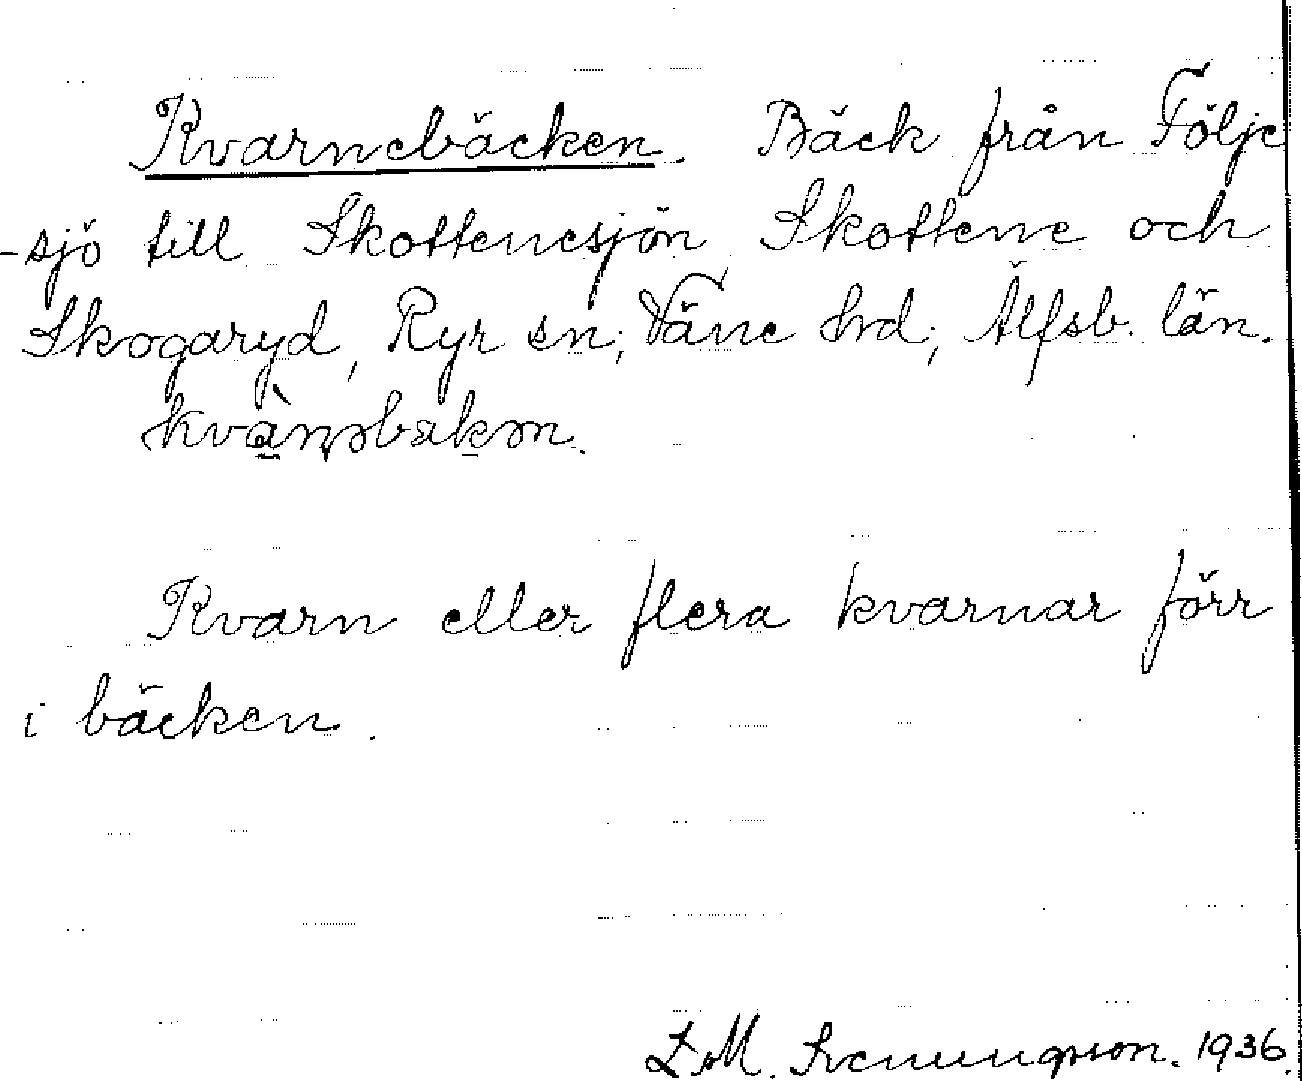 Kvarnebäcken. Bäck från Följe
-sjö till Skottenesjön, Skottene och
Skogaryd, Ryr sn; Väne hd; Älfsb. län.
Kvarn eller flera kvarnar förr
i bäcken.
L. M. Svenungsson. 1936.